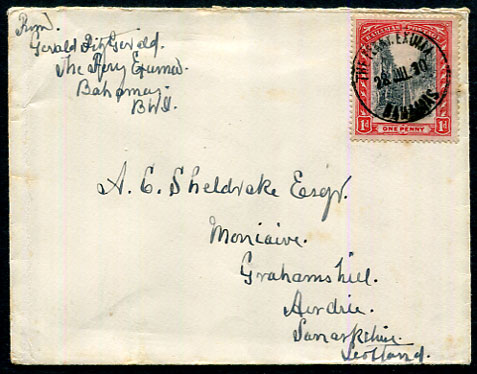 From
Gerald FitzGerald.
The Ferry Exuma
Bahamas.
BWI.
BAHAMAS POSTAGE
1d ONE PENNY 1d
THE FERRY. EXUMA
28 JUL 30
BAHAMAS
A. E. Sheldrake Esqr.
Moniaive.
Grahamshill.
Airdrie.
Lanarkshire.
Scotland.